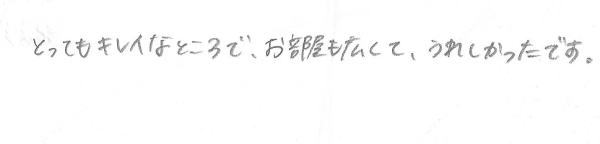 とってもキレイなところで、お部屋も広くて、うれしかったです。